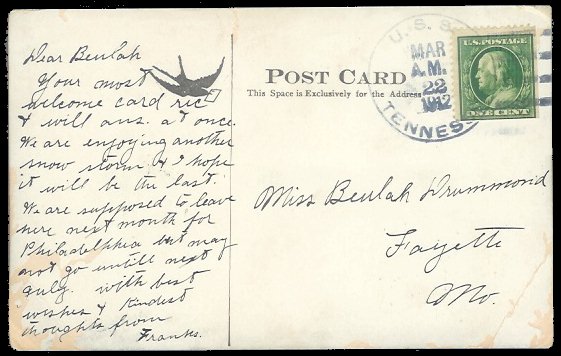 Dear Beulah
Your most
welcome card rec
& will ans. at once.
We are enjoying another
snow storm & I hope
it will be the last.
We are supposed to leave
here next month for
Philadelphia but may
not go untill next
July. with best
wishes & kindest
thoughts from
Franks.
POST CARD
This Space is Exclusively for the Address
U. S. S.
MAR
A.M.
22
1912
TENNESS
U.S. POSTAGE
ONE CENT
Miss Beulah Drummond
Fayette
Mo.